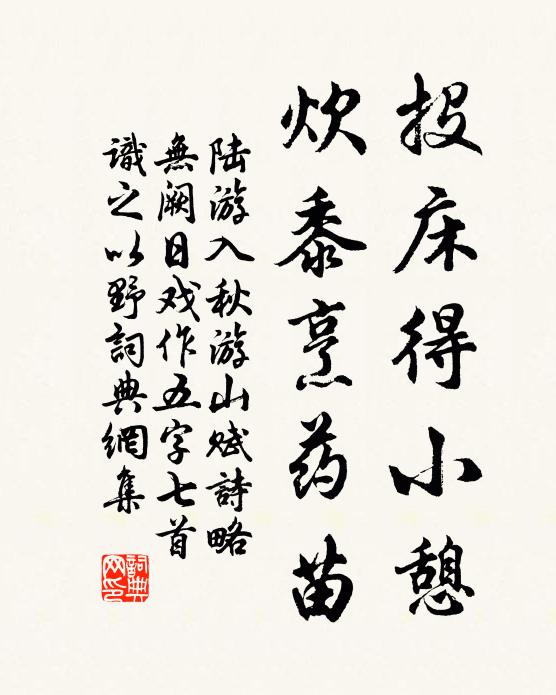 投床得小憩
炊黍烹药苗
陆游入秋游山赋詩略
無阙日戏作五字七首
識之以野詞典網集
詞典网印